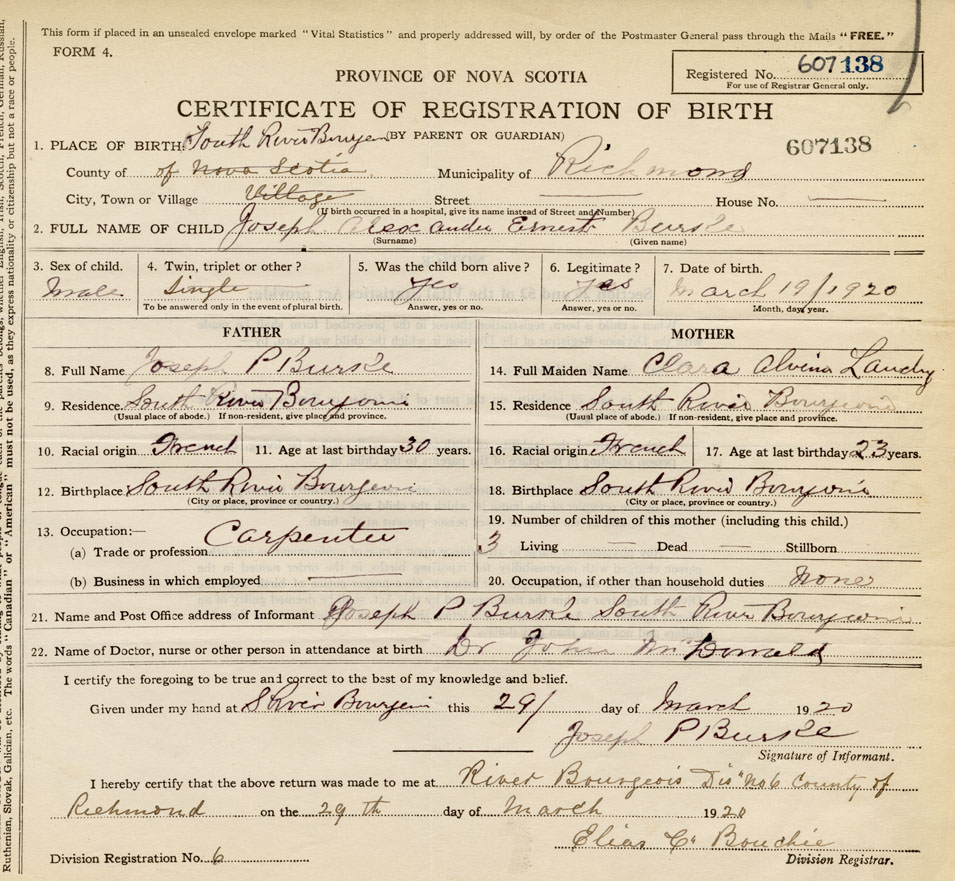 This form if placed in an unsealed envelope marked "Vital Statistics" and properly addressed will, by order of the Postmaster General pass through the Mails "FREE."
FORM 4.
Registered No. 607138
For use of Registrar General only.
PROVINCE OF NOVA SCOTIA
CERTIFICATE OF REGISTRATION OF BIRTH
(BY PARENT OR GUARDIAN)
607138
1. PLACE OF BIRTH: South River Bourgeo
County of of Nova Scotia Municipality of Richmond
City, Town or Village Village Street House No.
(If birth occurred in a hospital, give its name instead of Street and Number)
2. FULL NAME OF CHILD Joseph Alexander Ernest Burke
(Surname) (Given name)
3. Sex of child. 4. Twin, triplet or other? 5. Was the child born alive? 6. Legitimate? 7. Date of birth.
Male Single yes yes March 19/1920
To be answered only in the event of plural birth. Answer, yes or no. Answer, yes or no. Month, day, year.
FATHER
8. Full Name Joseph P Burke
9. Residence South River Bourgeois
(Usual place of abode.) If non-resident, give place and province.
10. Racial origin French 11. Age at last birthday 30 years.
12. Birthplace South River Bourgeois
(City or place, province or country.)
13. Occupation:—
(a) Trade or profession Carpenter
(b) Business in which employed
MOTHER
14. Full Maiden Name Clara Alvina Landry
15. Residence South River Bourgeois
(Usual place of abode.) If non-resident, give place and province.
16. Racial origin French 17. Age at last birthday 23 years.
18. Birthplace South River Bourgeois
(City or place, province or country.)
19. Number of children of this mother (including this child.)
3 Living — Dead — Stillborn
20. Occupation, if other than household duties None
21. Name and Post Office address of Informant Joseph P Burke South River Bourgeois
22. Name of Doctor, nurse or other person in attendance at birth Dr John McDonald
I certify the foregoing to be true and correct to the best of my knowledge and belief.
Given under my hand at S River Bourgeois this 29/ day of March 1920
Joseph P Burke
Signature of Informant.
I hereby certify that the above return was made to me at River Bourgeois Dis No 6 County of
Richmond on the 29th day of March 1920
Elias C. Bouchie
Division Registrar.
Division Registration No. 6
Ruthenian, Slovak, Galician, etc. The words "Canadian" or "American" must not be used, as they express nationality or citizenship but not a race or people.